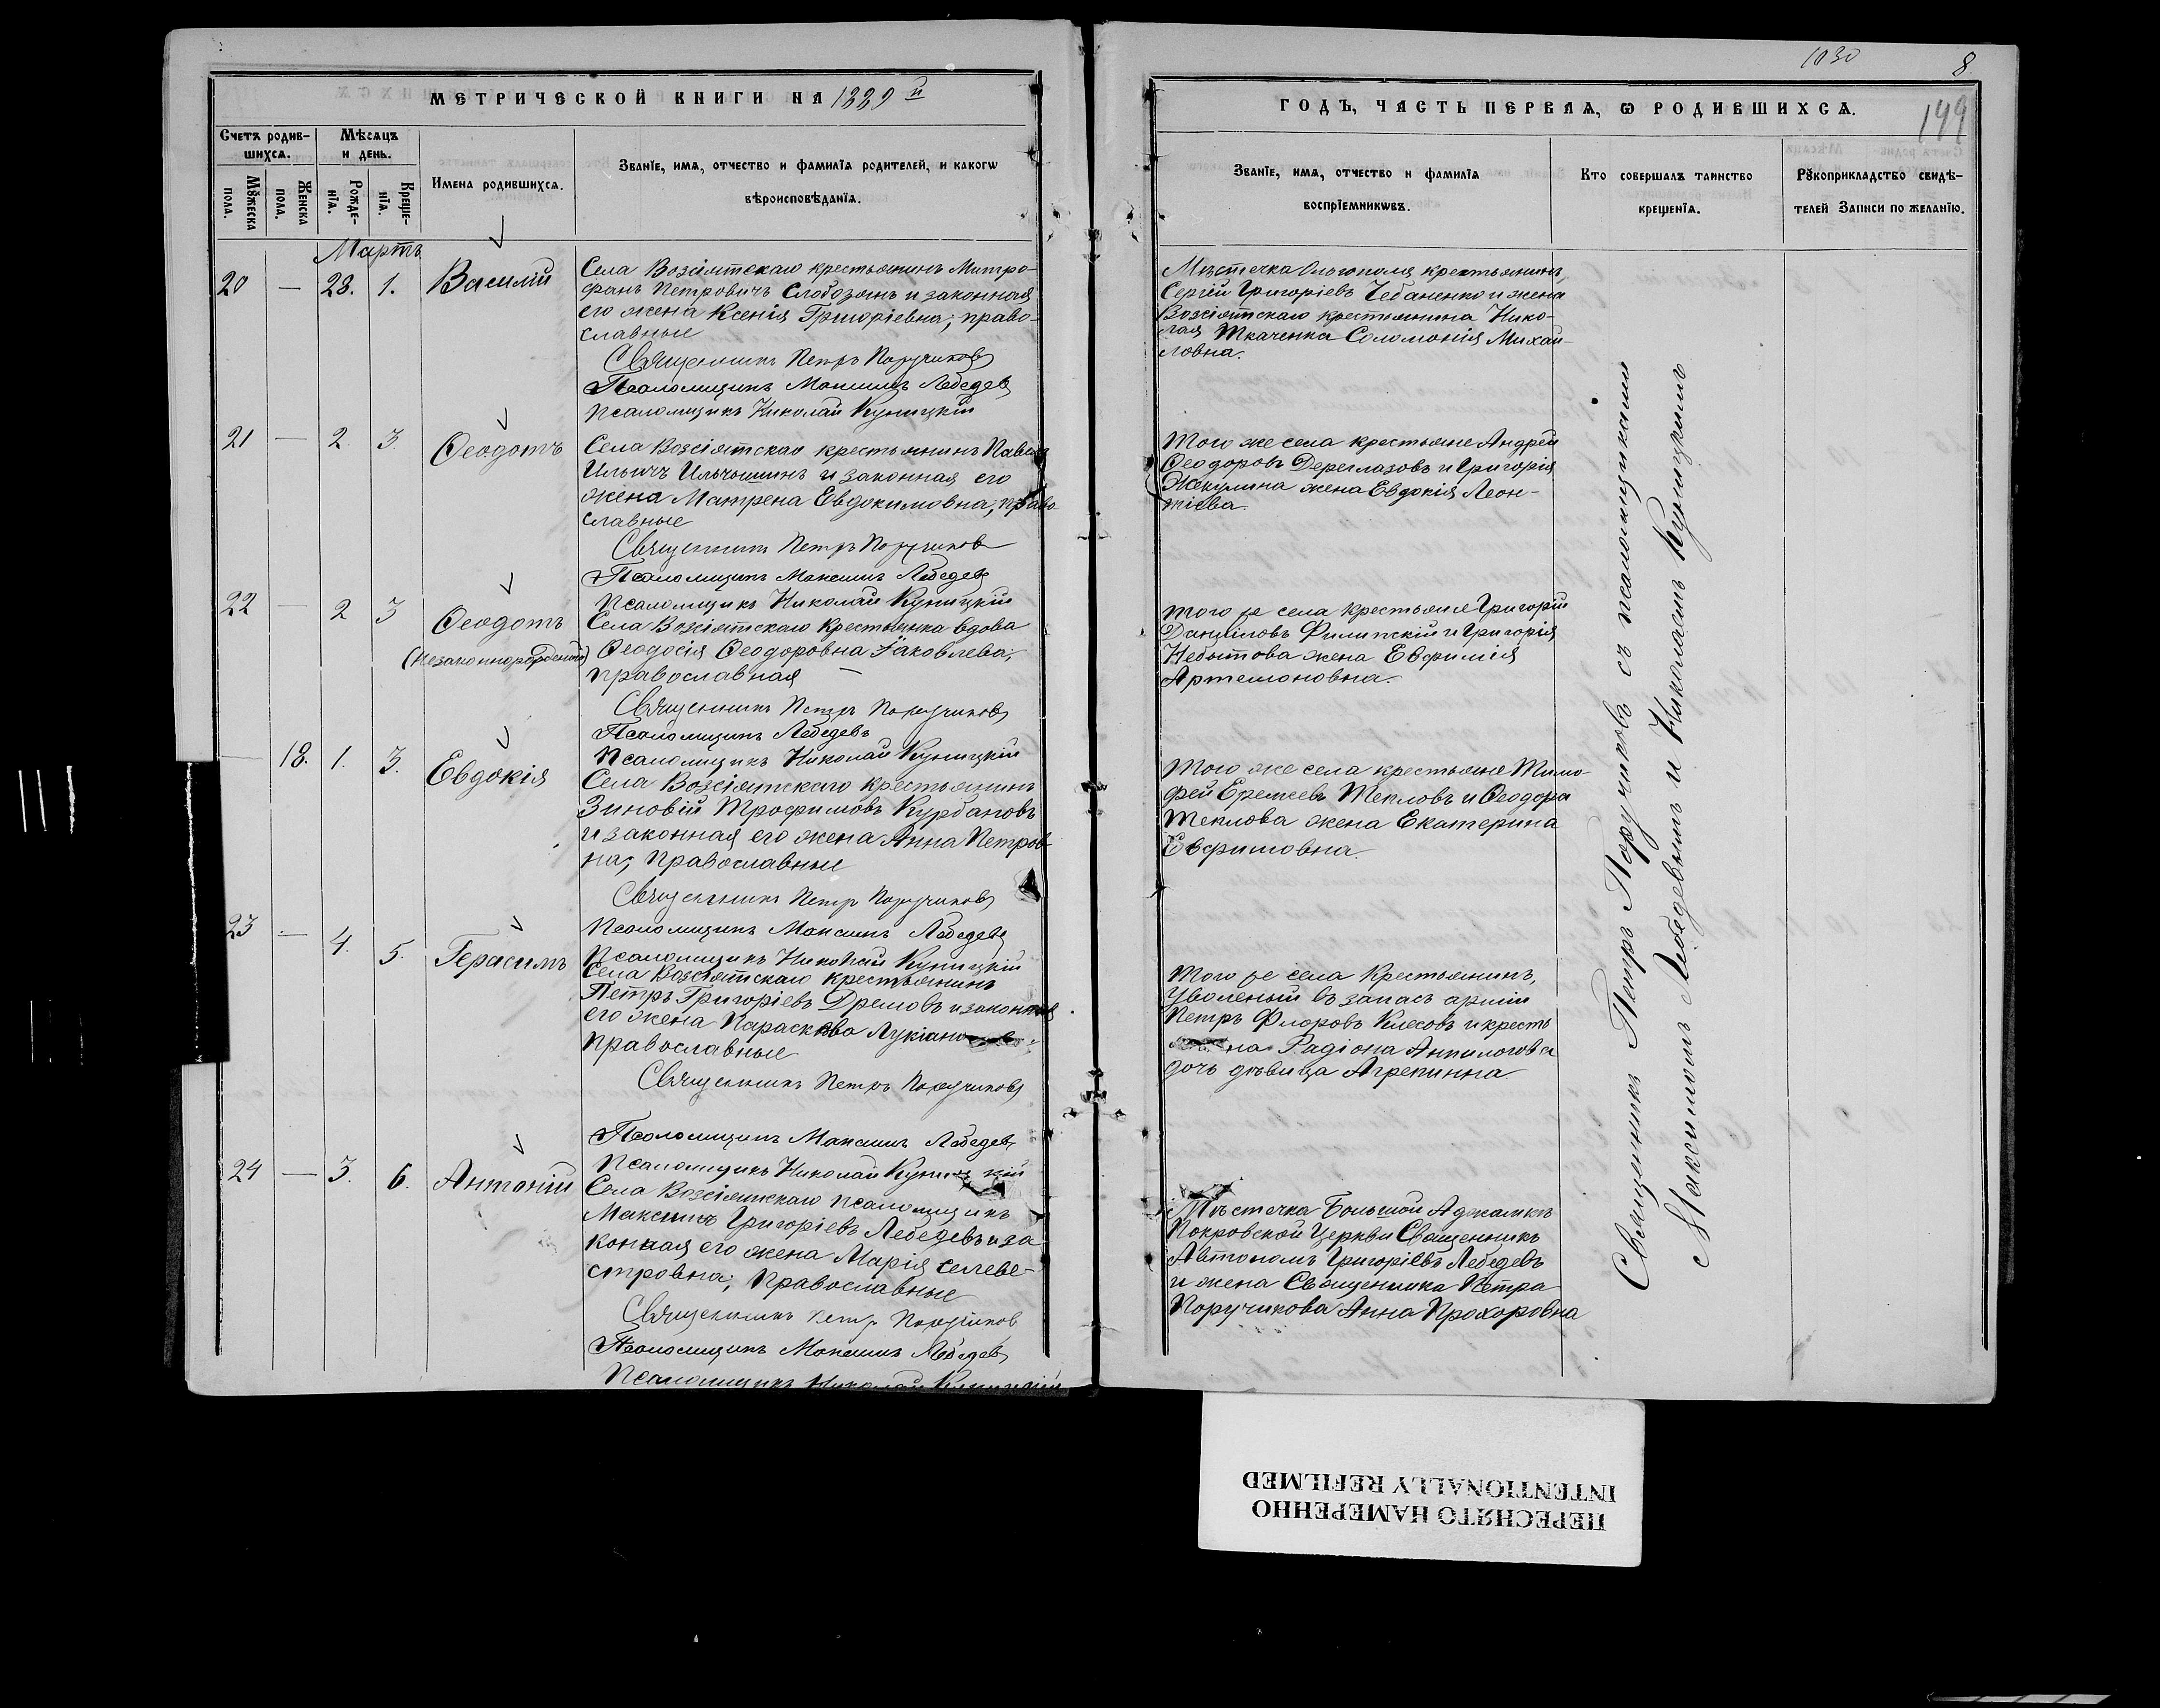 МЕТРИЧЕСКОЙ КНИГИ НА 1889 й
Счетъ родив-
шихся.
Мѣсяцъ
и день.
Мꙋжеска
пола.
Женска
пола.
Рожде-
нїя.
Креще-
нїя.
Имена родившихся.
Званїе, имя, отчество и фамилїя родителей, и какогѡ
вѣроисповѣданїя.
Мартъ
20 — 28. 1. Василій
Села Возсіятскаго крестьянинъ Митро-
фанъ Петровичъ Слободзянъ и законная
его жена Ксенія Григоріевна; право-
славные
Священникъ Петръ Поручиковъ
Псаломщикъ Максимъ Лебедев
Псаломщикъ Николай Куницкій
21 — 2 3 Ѳеодотъ
Села Возсіятскаго крестьянинъ Павелъ
Ильичъ Ильчишинъ и законная его
жена Матрена Евдокимовна; право
славные
Священникъ Петръ Поручиковъ
Псаломщикъ Максимъ Лебедев
Псаломщикъ Николай Куницкій
22 — 2 3 Ѳеодотъ
(Незаконнорожденный)
Села Возсіятскаго Крестьянка вдова
Ѳеодосія Ѳеодоровна Іаковлева;
православная —
Священникъ Петръ Поручиковъ
Псаломщикъ Лебедевъ
Псаломщикъ Николай Куницкій
— 18. 1. 3. Евдокія
Села Возсіятскаго крестьянинъ
Зиновій Трофимовъ Курбановъ
и законная его жена Анна Петров-
на; православные
Священникъ Петр Поручиковъ
Псаломщикъ Максимъ Лебедев
Псаломщикъ Николай Куницкій
23 — 4. 5. Герасимъ
Села Возсіятскаго крестьянинъ
Петръ Григоріевъ Дремовъ и законная
его жена Параскева
Православные
Священникъ Петръ Поручиковъ
Псаломщикъ Максимъ Лебедев
Псаломщикъ Николай Куницкій
24 — 3. 6. Антоній
Села Возсіятскаго псаломщикъ
Максимъ Григоріевъ Лебедевъ и за
конная его жена Марія Селеве-
стровна; Православные
Священникъ Петр Поручиков
Псаломщикъ Максимъ Лебедев
Псаломщикъ Николай Куницкій
1030
8
149
ГОДЪ, ЧАСТЬ ПЕРВАЯ, Ѡ РОДИВШИХСЯ.
Званїе, имя, отчество и фамилїя
воспрїемникѡвъ.
Кто совершалъ таинство
крещенїя.
Рꙋкоприкладство свидѣ-
телей записи по желанїю.
Мѣстечка Ольгополя крестьянинъ
Сергій Григоріевъ Чебаненко и жена
Возсіятскаго крестьянина Нико-
лая Ткаченка Соломонія Михай-
ловна.
Того же села крестьяне Андрей
Ѳеодоровъ Дереглазовъ и Григорія
Жекулина жена Евдокія Леон-
тіева.
Того же села крестьяне Григорій
Даниловъ Филипскій и Григорія
Небытова жена Евфимія
Артемоновна.
Того же села крестьяне Тимо-
фей Еремеевъ Тепловъ и Ѳеодора
Теплова жена Екатерина
Евфимовна.
Того же села Крестьянинъ,
Уволеный въ запасъ арміи
Петръ Флоровъ Клесовъ и кресть
на Радіона Анпилогова
дочь дѣвица Агрепинна
Мѣстечка Большой Аджамки
Покровской Церкви Священникъ
Автономъ Григоріевъ Лебедевъ
и жена Священника Петра
Поручикова Анна Прохоровна
Священникъ Петръ Поручиковъ съ псаломщиками
Максимомъ Лебедевымъ и Николаемъ Куницкимъ
ПЕРЕСНЯТО НАМЕРЕННО
INTENTIONALLY REFILMED